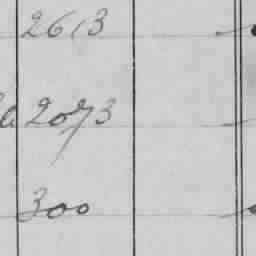 2613
2073
300